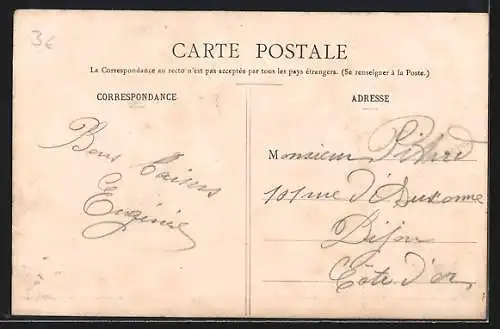 3€
CARTE POSTALE
La Correspondance au recto n'est pas acceptée par tous les pays étrangers. (Se renseigner à la Poste.)
CORRESPONDANCE
Bons baisers
Eugénie
ADRESSE
Monsieur
101 rue d'Auxonne
Dijon
Côte d'or